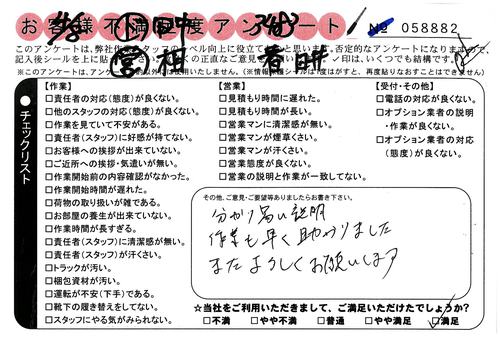 お客様不満足度アンケート
№ 058882
このアンケートは、弊社
記入後シールを上に貼って
※このアンケートは、アンケ
チェックリスト
【作業】
□責任者の対応(態度)が良くない。
□他のスタッフの対応(態度)が良くない。
□作業を見ていて不安がある。
□責任者(スタッフ)に好感が持てない。
□お客様への挨拶が出来ていない。
□ご近所への挨拶・気遣いが無い。
□作業開始前の内容確認がなかった。
□作業開始時間が遅れた。
□荷物の取り扱いが雑である。
□お部屋の養生が出来ていない。
□作業時間が長すぎる。
□責任者(スタッフ)に清潔感が無い。
□責任者(スタッフ)が汗くさい。
□トラックが汚い。
□梱包資材が汚い。
□運転が不安(下手)である。
□靴下の履き替えをしてない。
□スタッフにやる気がみられない。
【営業】
□見積もり時間に遅れた。
□見積もり時間が長い。
□営業マンに清潔感が無い。
□営業マンが煙草くさい。
□営業マンが汗くさい。
□営業態度が良くない。
□営業の説明と作業が一致してない。
【受付・その他】
□電話の対応が良くない。
□オプション業者の説明
・作業が良くない。
□オプション業者の対応
(態度)が良くない。
その他、ご意見・ご要望等ありましたらお書き下さい。
分かり易い説明
作業も早く助かりました
またよろしくお願いします
☆当社をご利用いただきまして、ご満足いただけたでしょうか?
□不満 □やや不満 □普通 □やや満足 □満足